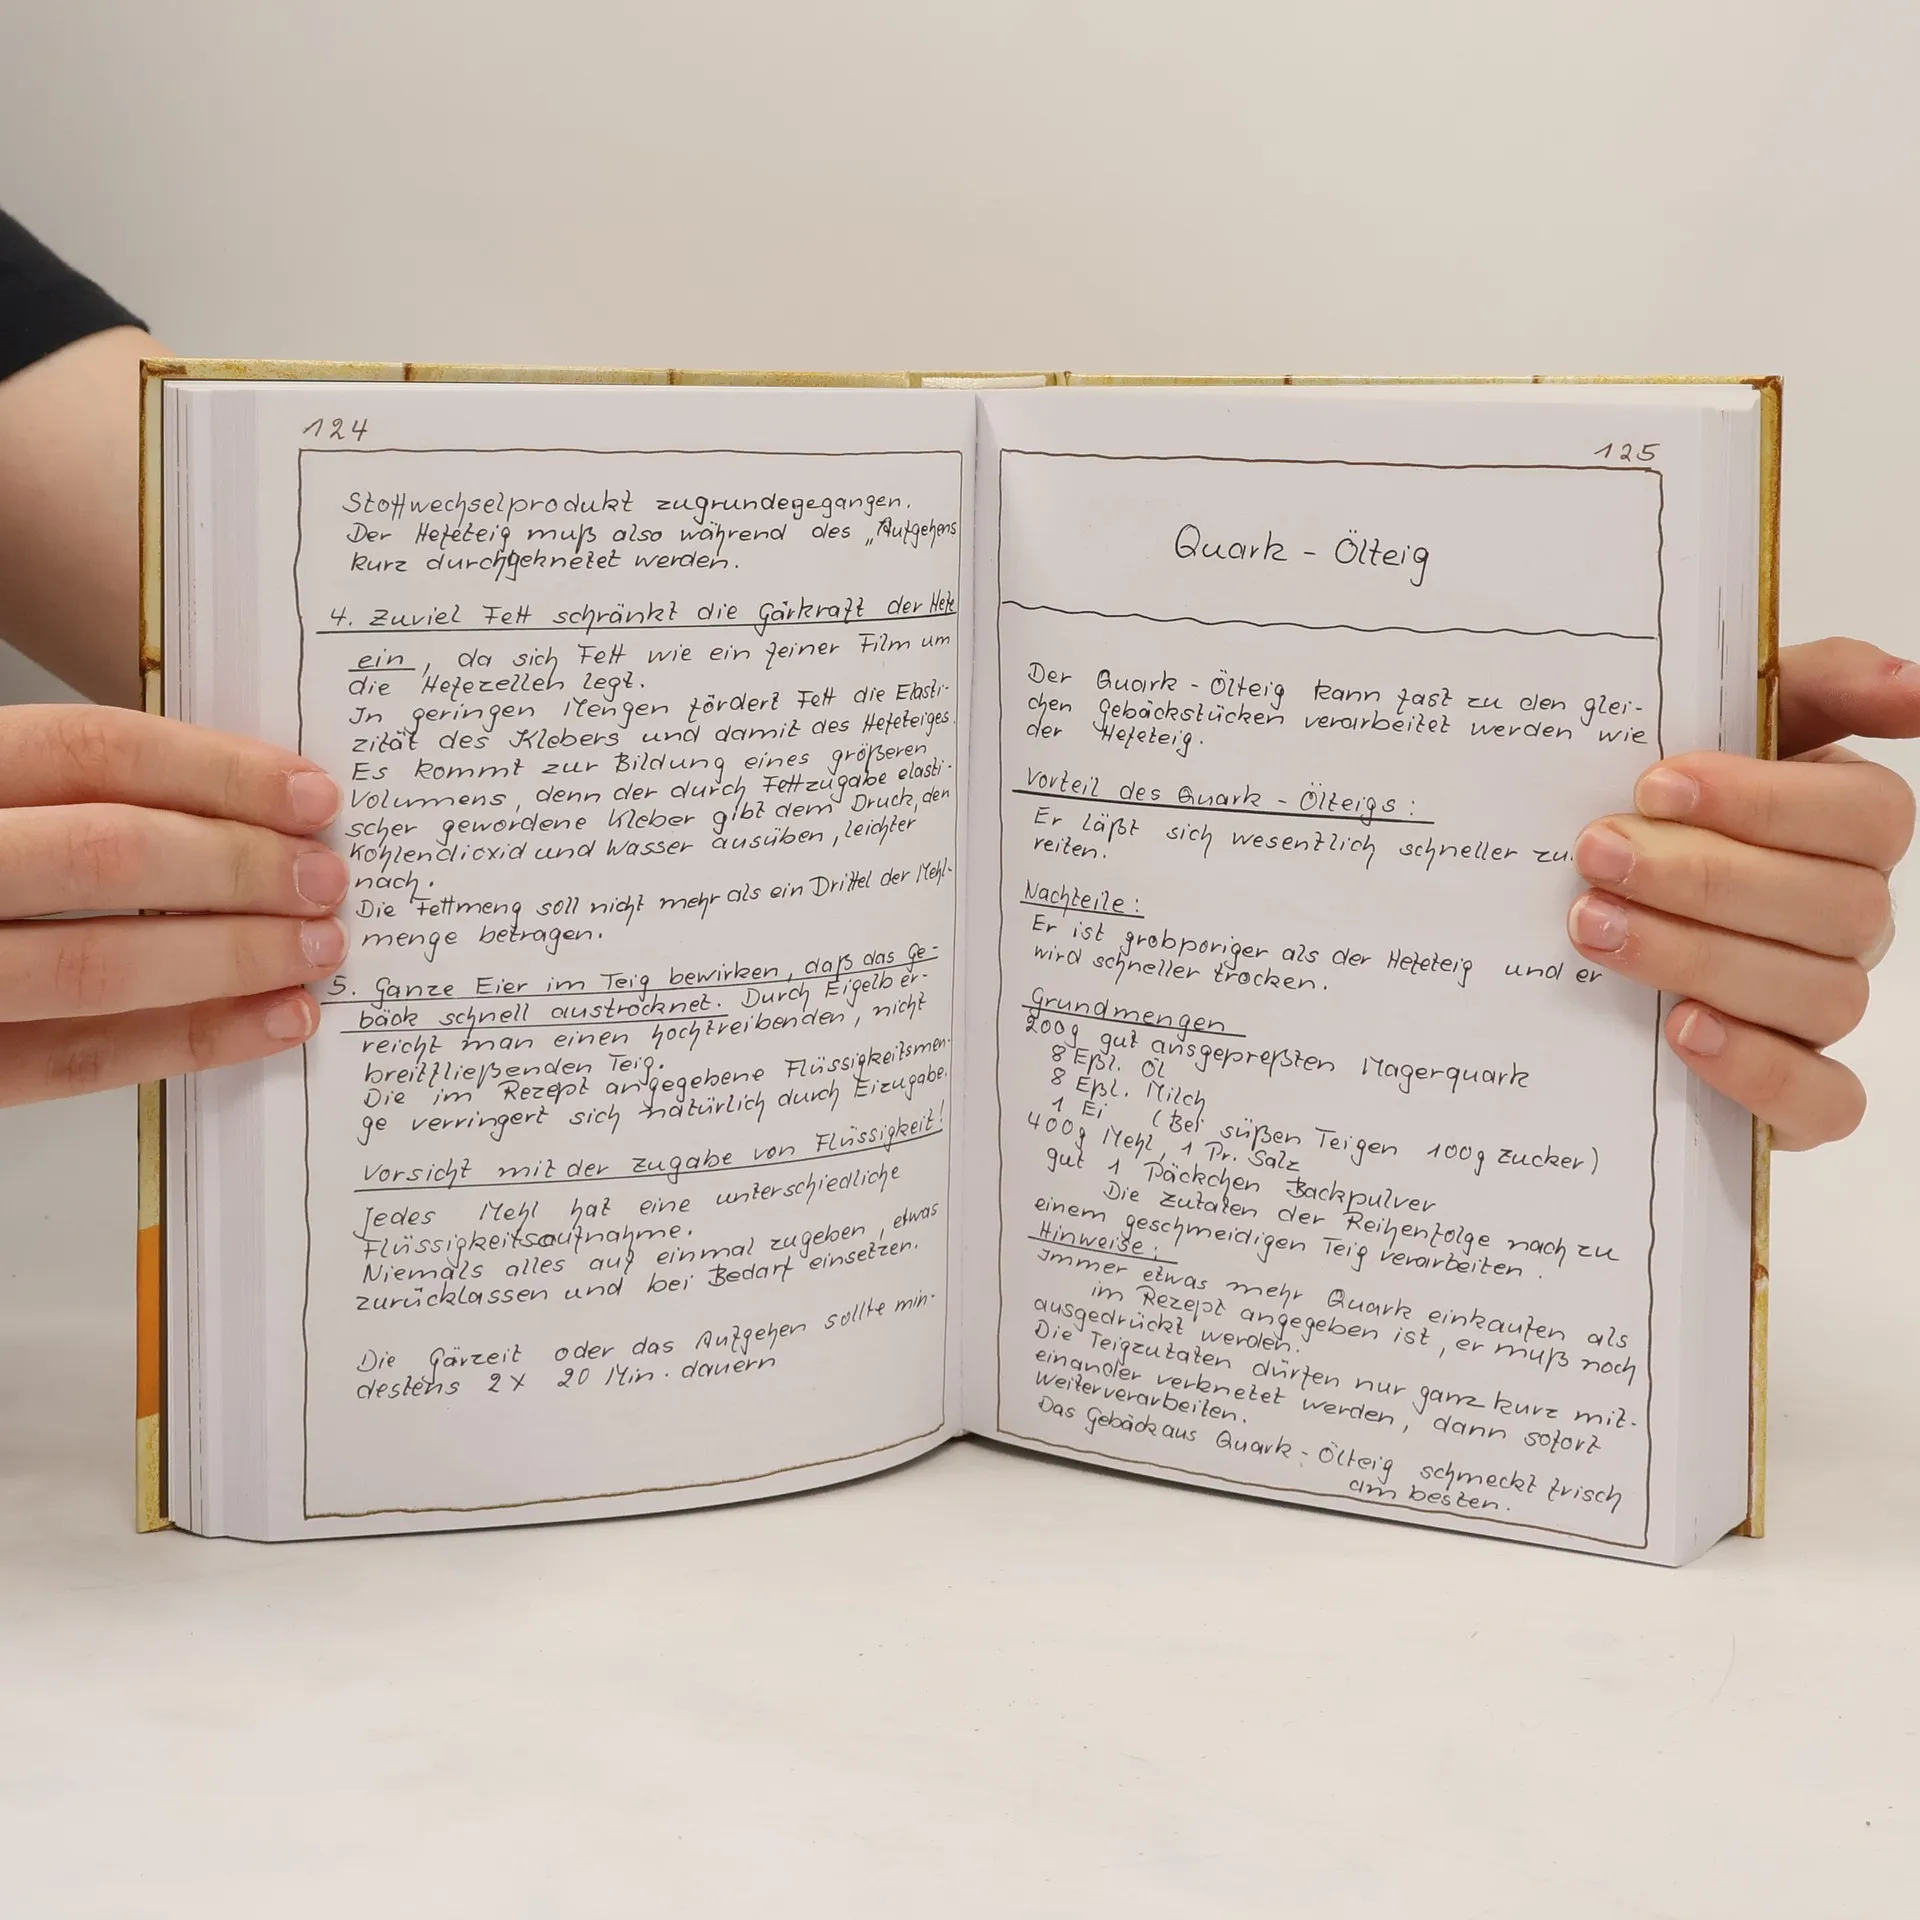 124
Stoffwechselprodukt zugrundegegangen.
Der Hefeteig muß also während des „Aufgehens
kurz durchgeknetet werden.
4. Zuviel Fett schränkt die Gärkraft der Hefe
ein, da sich Fett wie ein feiner Film um
die Hefezellen legt.
In geringen Mengen fördert Fett die Elasti-
zität des Klebers und damit des Hefeteiges.
Es kommt zur Bildung eines größeren
Volumens, denn der durch Fettzugabe elasti-
scher gewordene Kleber gibt dem Druck, den
Kohlendioxid und Wasser ausüben, leichter
nach.
Die Fettmeng soll nicht mehr als ein Drittel der Mehl-
menge betragen.
5. Ganze Eier im Teig bewirken, daß das Ge-
bäck schnell austrocknet. Durch Eigelb er-
reicht man einen hochtreibenden, nicht
breitfließenden Teig.
Die im Rezept angegebene Flüssigkeitsmen-
ge verringert sich natürlich durch Eizugabe.
Vorsicht mit der Zugabe von Flüssigkeit!
Jedes Mehl hat eine unterschiedliche
Flüssigkeitsaufnahme.
Niemals alles auf einmal zugeben, etwas
zurücklassen und bei Bedarf einsetzen.
Die Gärzeit oder das Aufgehen sollte min-
destens 2x 20 Min. dauern
125
Quark - Ölteig
Der Quark - Ölteig kann fast zu den glei-
chen Gebäckstücken verarbeitet werden wie
der Hefeteig.
Vorteil des Quark - Ölteigs:
Er läßt sich wesentlich schneller zu
reiten.
Nachteile:
Er ist grobporiger als der Hefeteig und er
wird schneller trocken.
Grundmengen
200g gut ausgepreßten Magerquark
8 Eßl. Öl
8 Eßl. Milch
1 Ei (Bei süßen Teigen 100g Zucker)
400g Mehl, 1 Pr. Salz
gut 1 Päckchen Backpulver
Die Zutaten der Reihenfolge nach zu
einem geschmeidigen Teig verarbeiten.
Hinweise:
Immer etwas mehr Quark einkaufen als
im Rezept angegeben ist, er muß noch
ausgedrückt werden.
Die Teigzutaten dürfen nur ganz kurz mit-
einander verknetet werden, dann sofort
weiterverarbeiten.
Das Gebäck aus Quark - Ölteig schmeckt frisch
am besten.